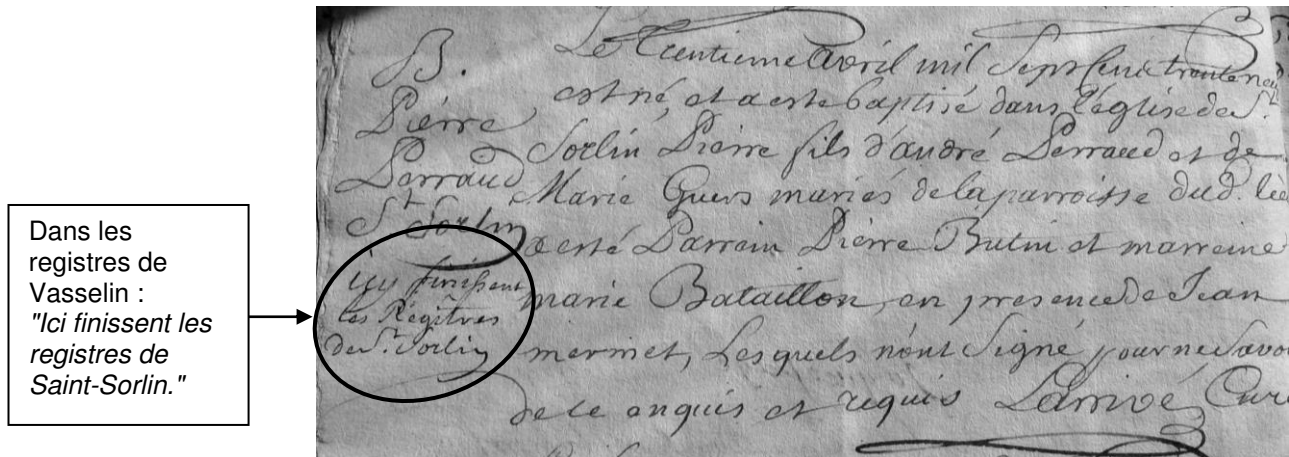 Dans les
registres de
Vasselin :
"Ici finissent les
registres de
Saint-Sorlin."
B.
Pierre
Perraud
St Sorlin
icy finissent
les Régîtres
de St. Sorlin
Le trentieme avril mil Sept Cent trente neuf
est né, et a esté baptisé dans l'église de St.
Sorlin Pierre fils d'andré Perraud et de
Marie Guers mariés de la parroisse dud. lieu
a esté Parrain Pierre Butin et marreine
marie Bataillon, en presence de Jean
mermet, Lesquels n'ont Signé pour ne Savoi
de ce enquis et requis Larrivé Curé